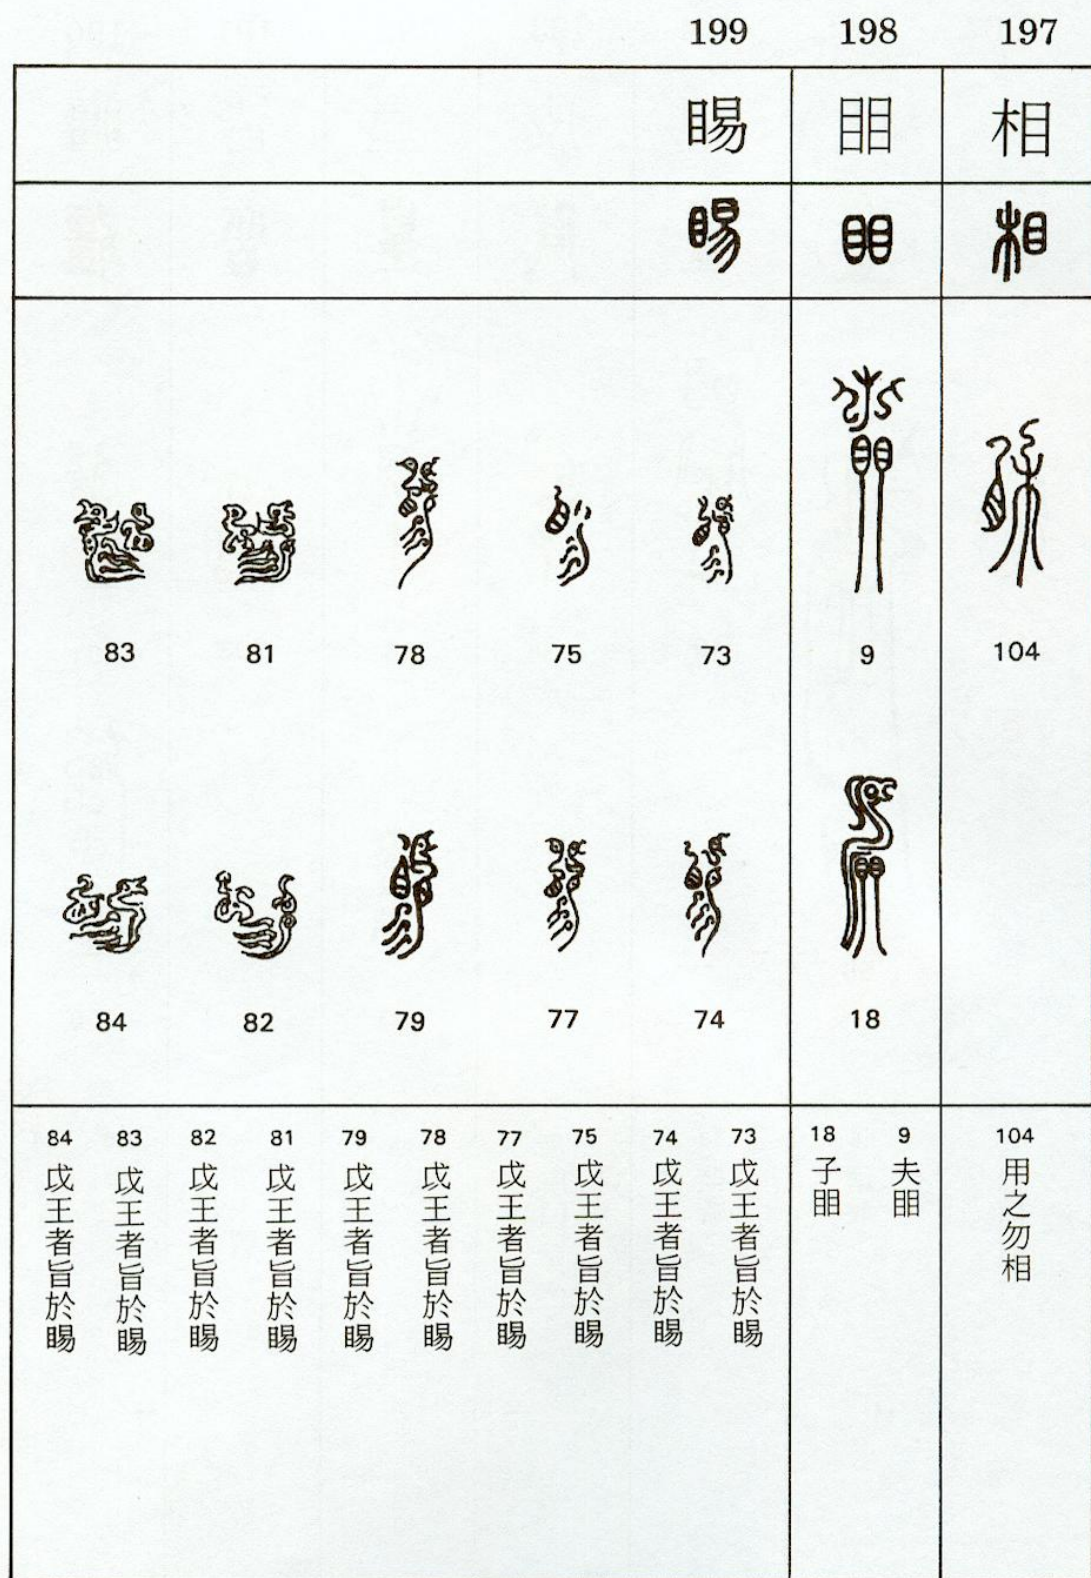 197
相
相
104
104 用之勿相
198
䀠
䀠
9
18
9 夫䀠
18 子䀠
199
睗
睗
73
74
75
77
78
79
81
82
83
84
73 戉王者旨於睗
74 戉王者旨於睗
75 戉王者旨於睗
77 戉王者旨於睗
78 戉王者旨於睗
79 戉王者旨於睗
81 戉王者旨於睗
82 戉王者旨於睗
83 戉王者旨於睗
84 戉王者旨於睗